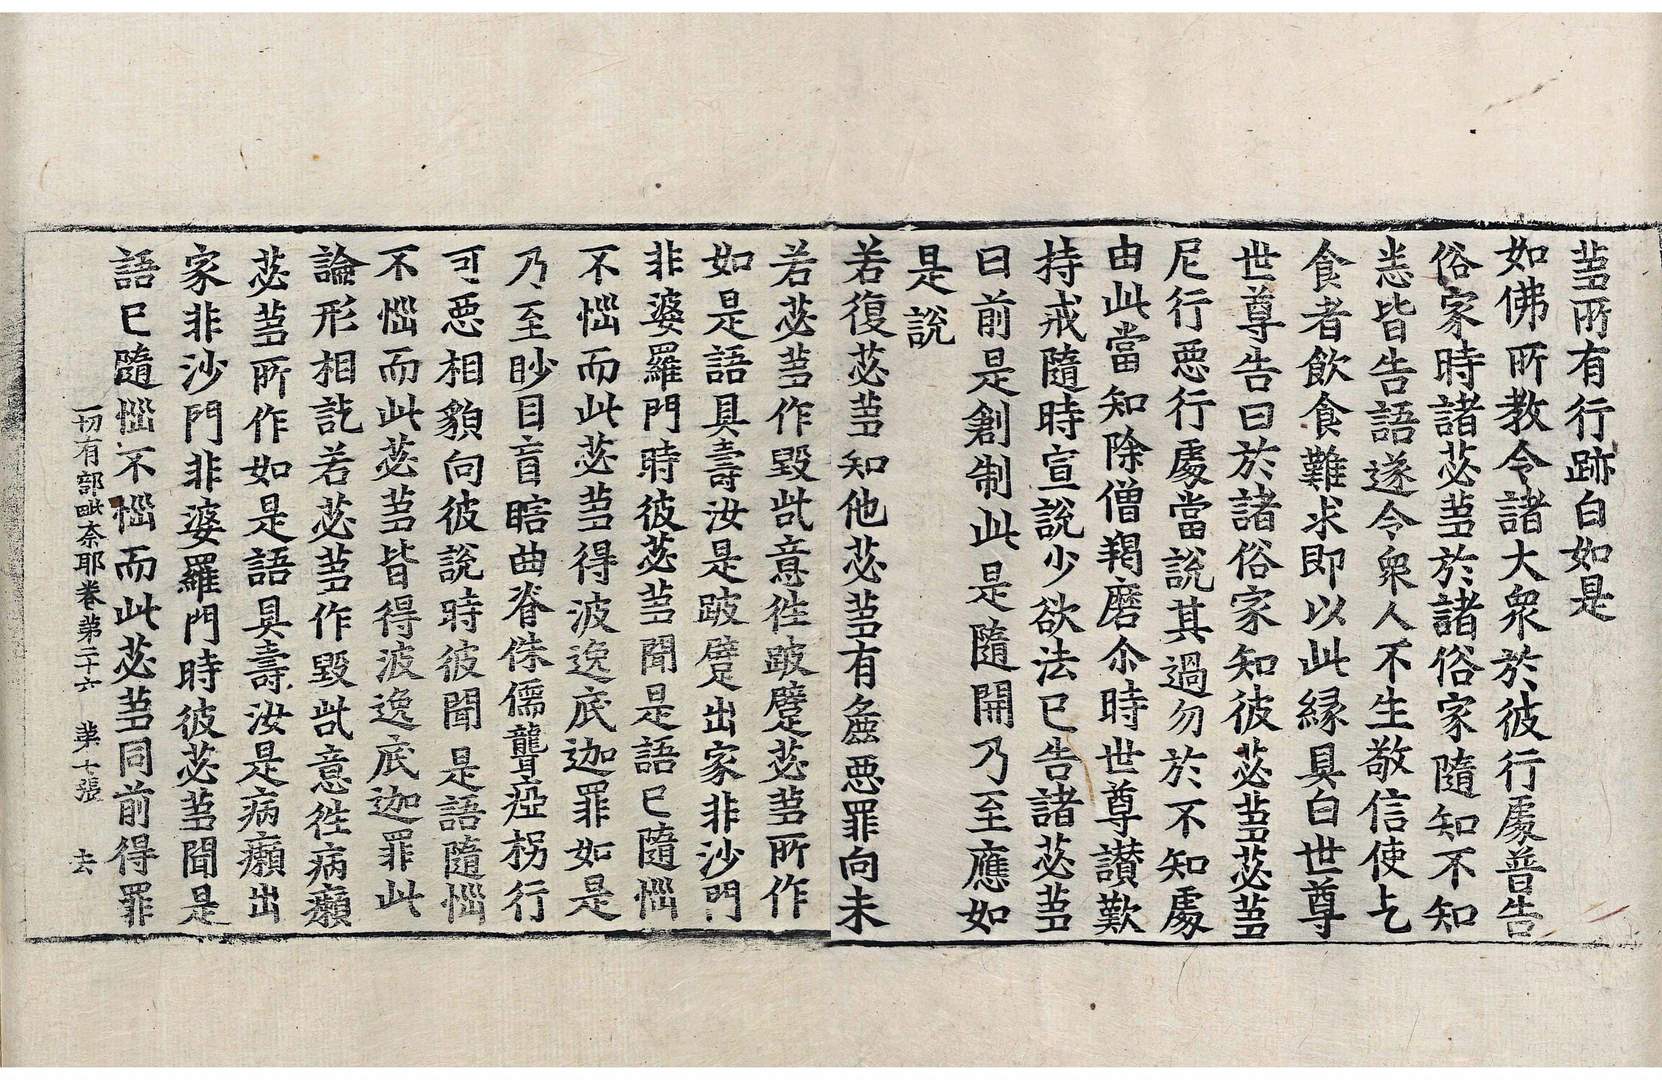 芻所有行跡白如是
如佛所教令諸大衆於彼行處普告
俗家時諸苾芻於諸俗家隨知不知
悉皆告語遂令衆人不生敬信使乞
食者飲食難求即以此縁具白世尊
世尊告曰於諸俗家知彼苾芻苾芻
尼行惡行處當說其過勿於不知處
由此當知除僧羯磨尒時世尊讃歎
持戒隨時宣說少欲法已告諸苾芻
曰前是創制此是隨開乃至應如
是說
若復苾芻知他苾芻有麁惡罪向未
若苾芻作毀呰意往跛躄苾芻所作
如是語具壽汝是跛躄出家非沙門
非婆羅門時彼苾芻聞是語已隨惱
不惱而此苾芻得波逸底迦罪如是
乃至眇目盲瞎曲脊侏儒聾瘂柺行
可惡相貌向彼說時彼聞是語隨惱
不惱而此苾芻皆得波逸底迦罪此
論形相訖若苾芻作毀呰意往病癩
苾芻所作如是語具壽汝是病癩出
家非沙門非婆羅門時彼苾芻聞是
語已隨惱不惱而此苾芻同前得罪
一切有部毗奈耶卷第二十六 第十張 去